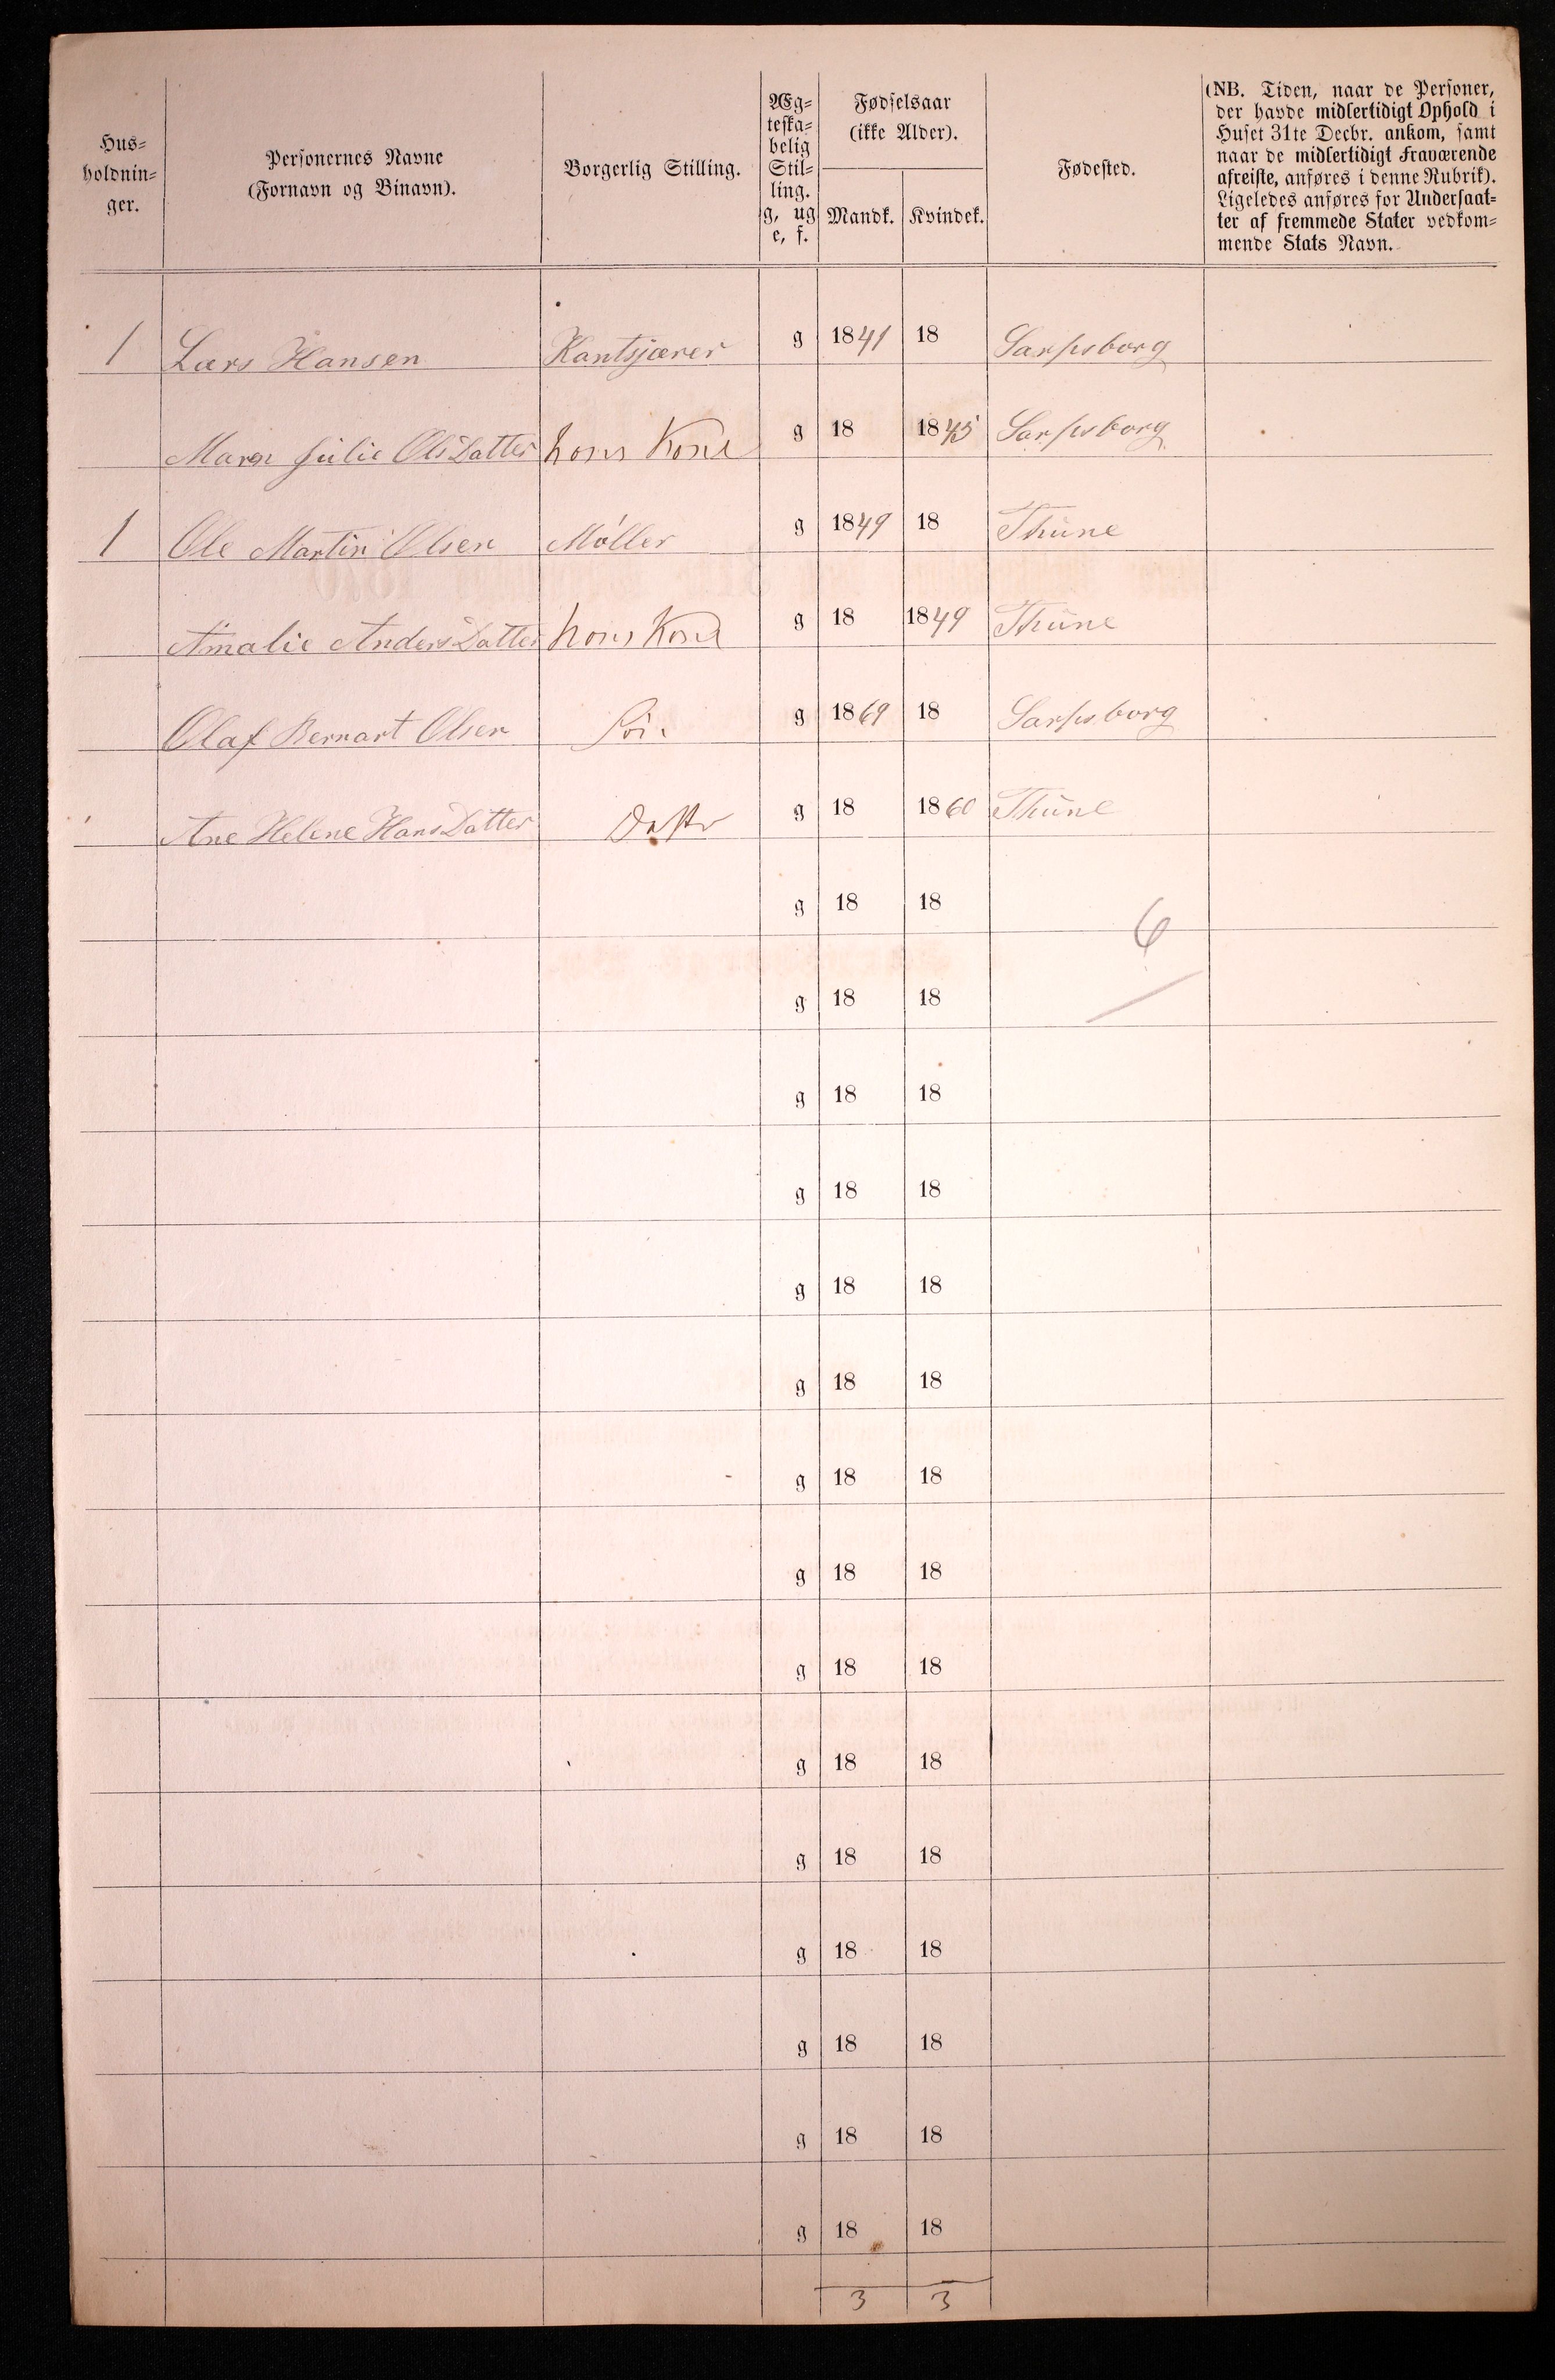 Hus-
holdnin-
ger.
Personernes Navne
(Fornavn og Binavn).
Borgerlig Stilling.
Æg-
teska-
belig
Stil-
ling.
g, ug
e, f.
Fødselsaar
(ikke Alder).
Mandk. Kvindek.
Fødested.
(NB. Tiden, naar de Personer,
der havde midlertidigt Ophold i
Huset 31te Decbr. ankom, samt
naar de midlertidigt Fraværende
afreiste, anføres i denne Rubrik).
Ligeledes anføres for Undersaat-
ter af fremmede Stater vedkom-
mende Stats Navn.
1 Lars Hansen Kantsjærer g 1841 18 Sarpsborg
Maren Julie OlsDatter hans Kone g 18 1845 Sarpsborg
1 Ole Martin Olsen Møller g 1849 18 Thune
Amalie AndersDatter hans Kone g 18 1849 Thune
Olaf Bernart Olsen g 1869 18 Sarpsborg
Ane Helene HansDatter g 18 1860 Thune
g 18 18
6
g 18 18
g 18 18
g 18 18
g 18 18
g 18 18
g 18 18
g 18 18
g 18 18
g 18 18
g 18 18
g 18 18
g 18 18
g 18 18
g 18 18
3 3